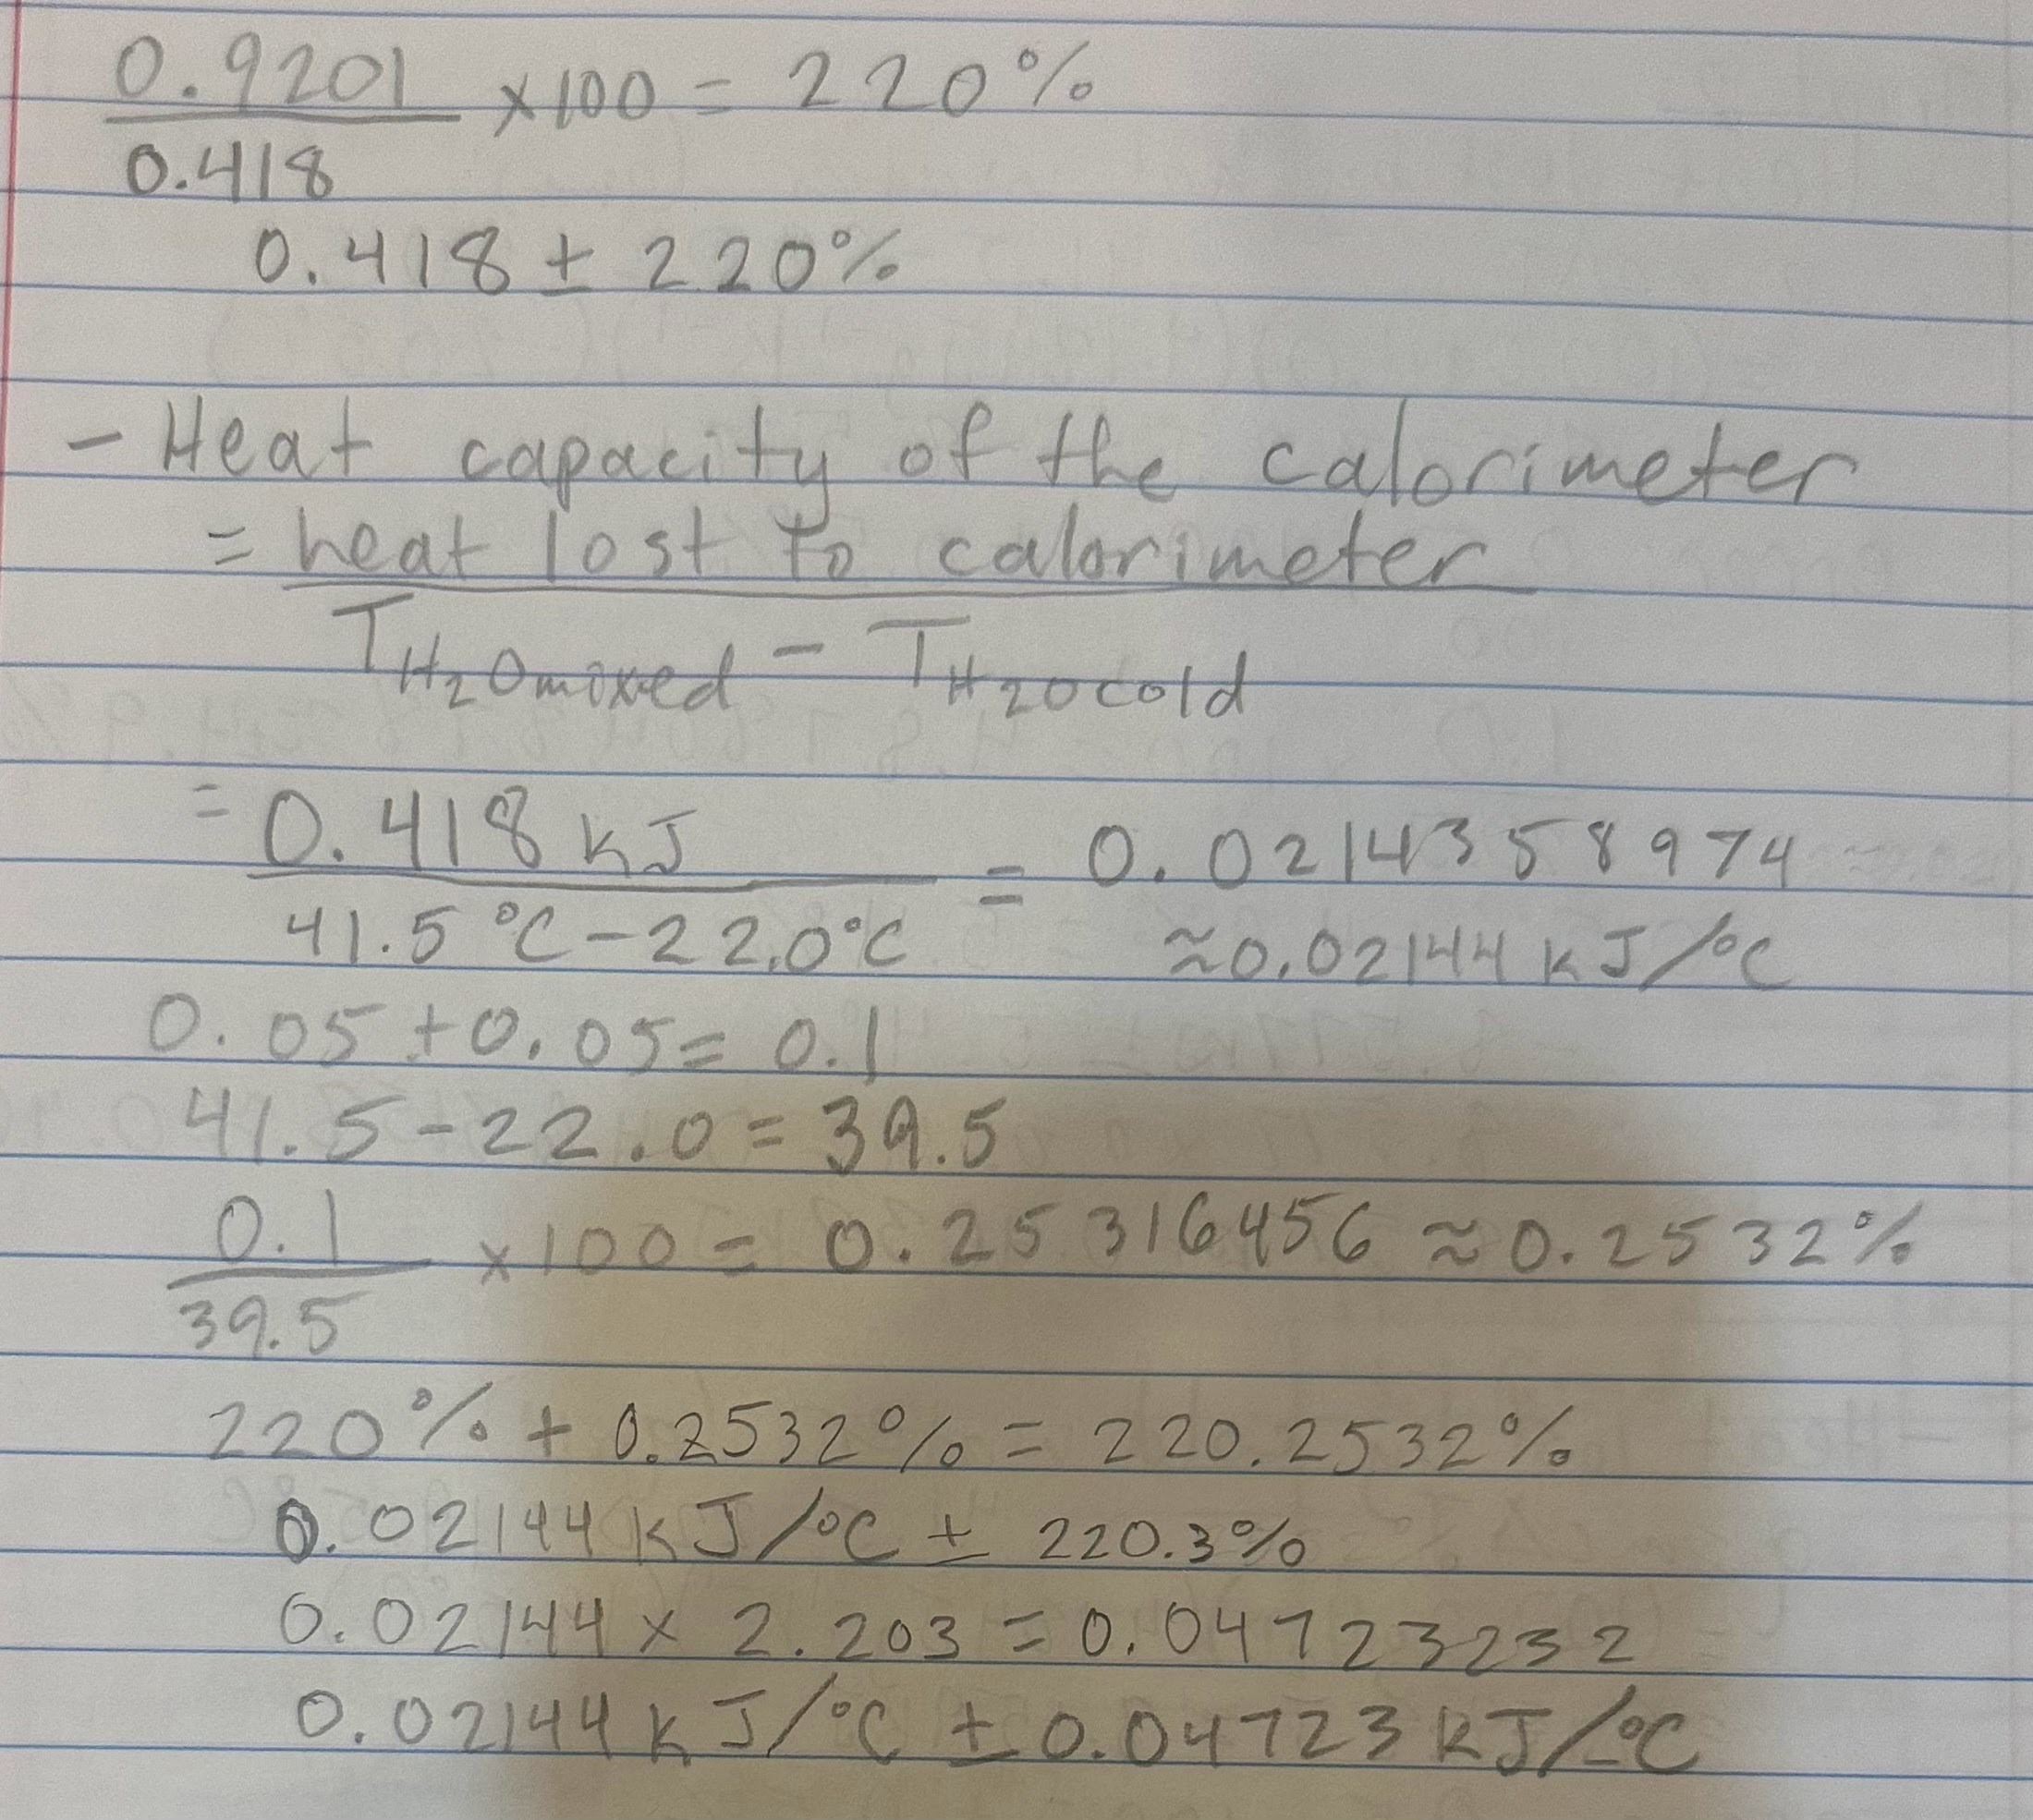 0.9201/0.418 ×100 = 220%
0.418 ± 220%
- Heat capacity of the calorimeter
= heat lost to calorimeter
T H₂O mixed - T H₂O cold
= 0.418 kJ / 41.5 °C - 22.0 °C = 0.0214358974
≈ 0.02144 kJ/°C
0.05 + 0.05 = 0.1
41.5 - 22.0 = 39.5
0.1/39.5 ×100 = 0.25316456 ≈ 0.2532%
220% + 0.2532% = 220.2532%
0.02144 kJ/°C ± 220.3%
0.02144 × 2.203 = 0.04723232
0.02144 kJ/°C ± 0.04723 kJ/°C